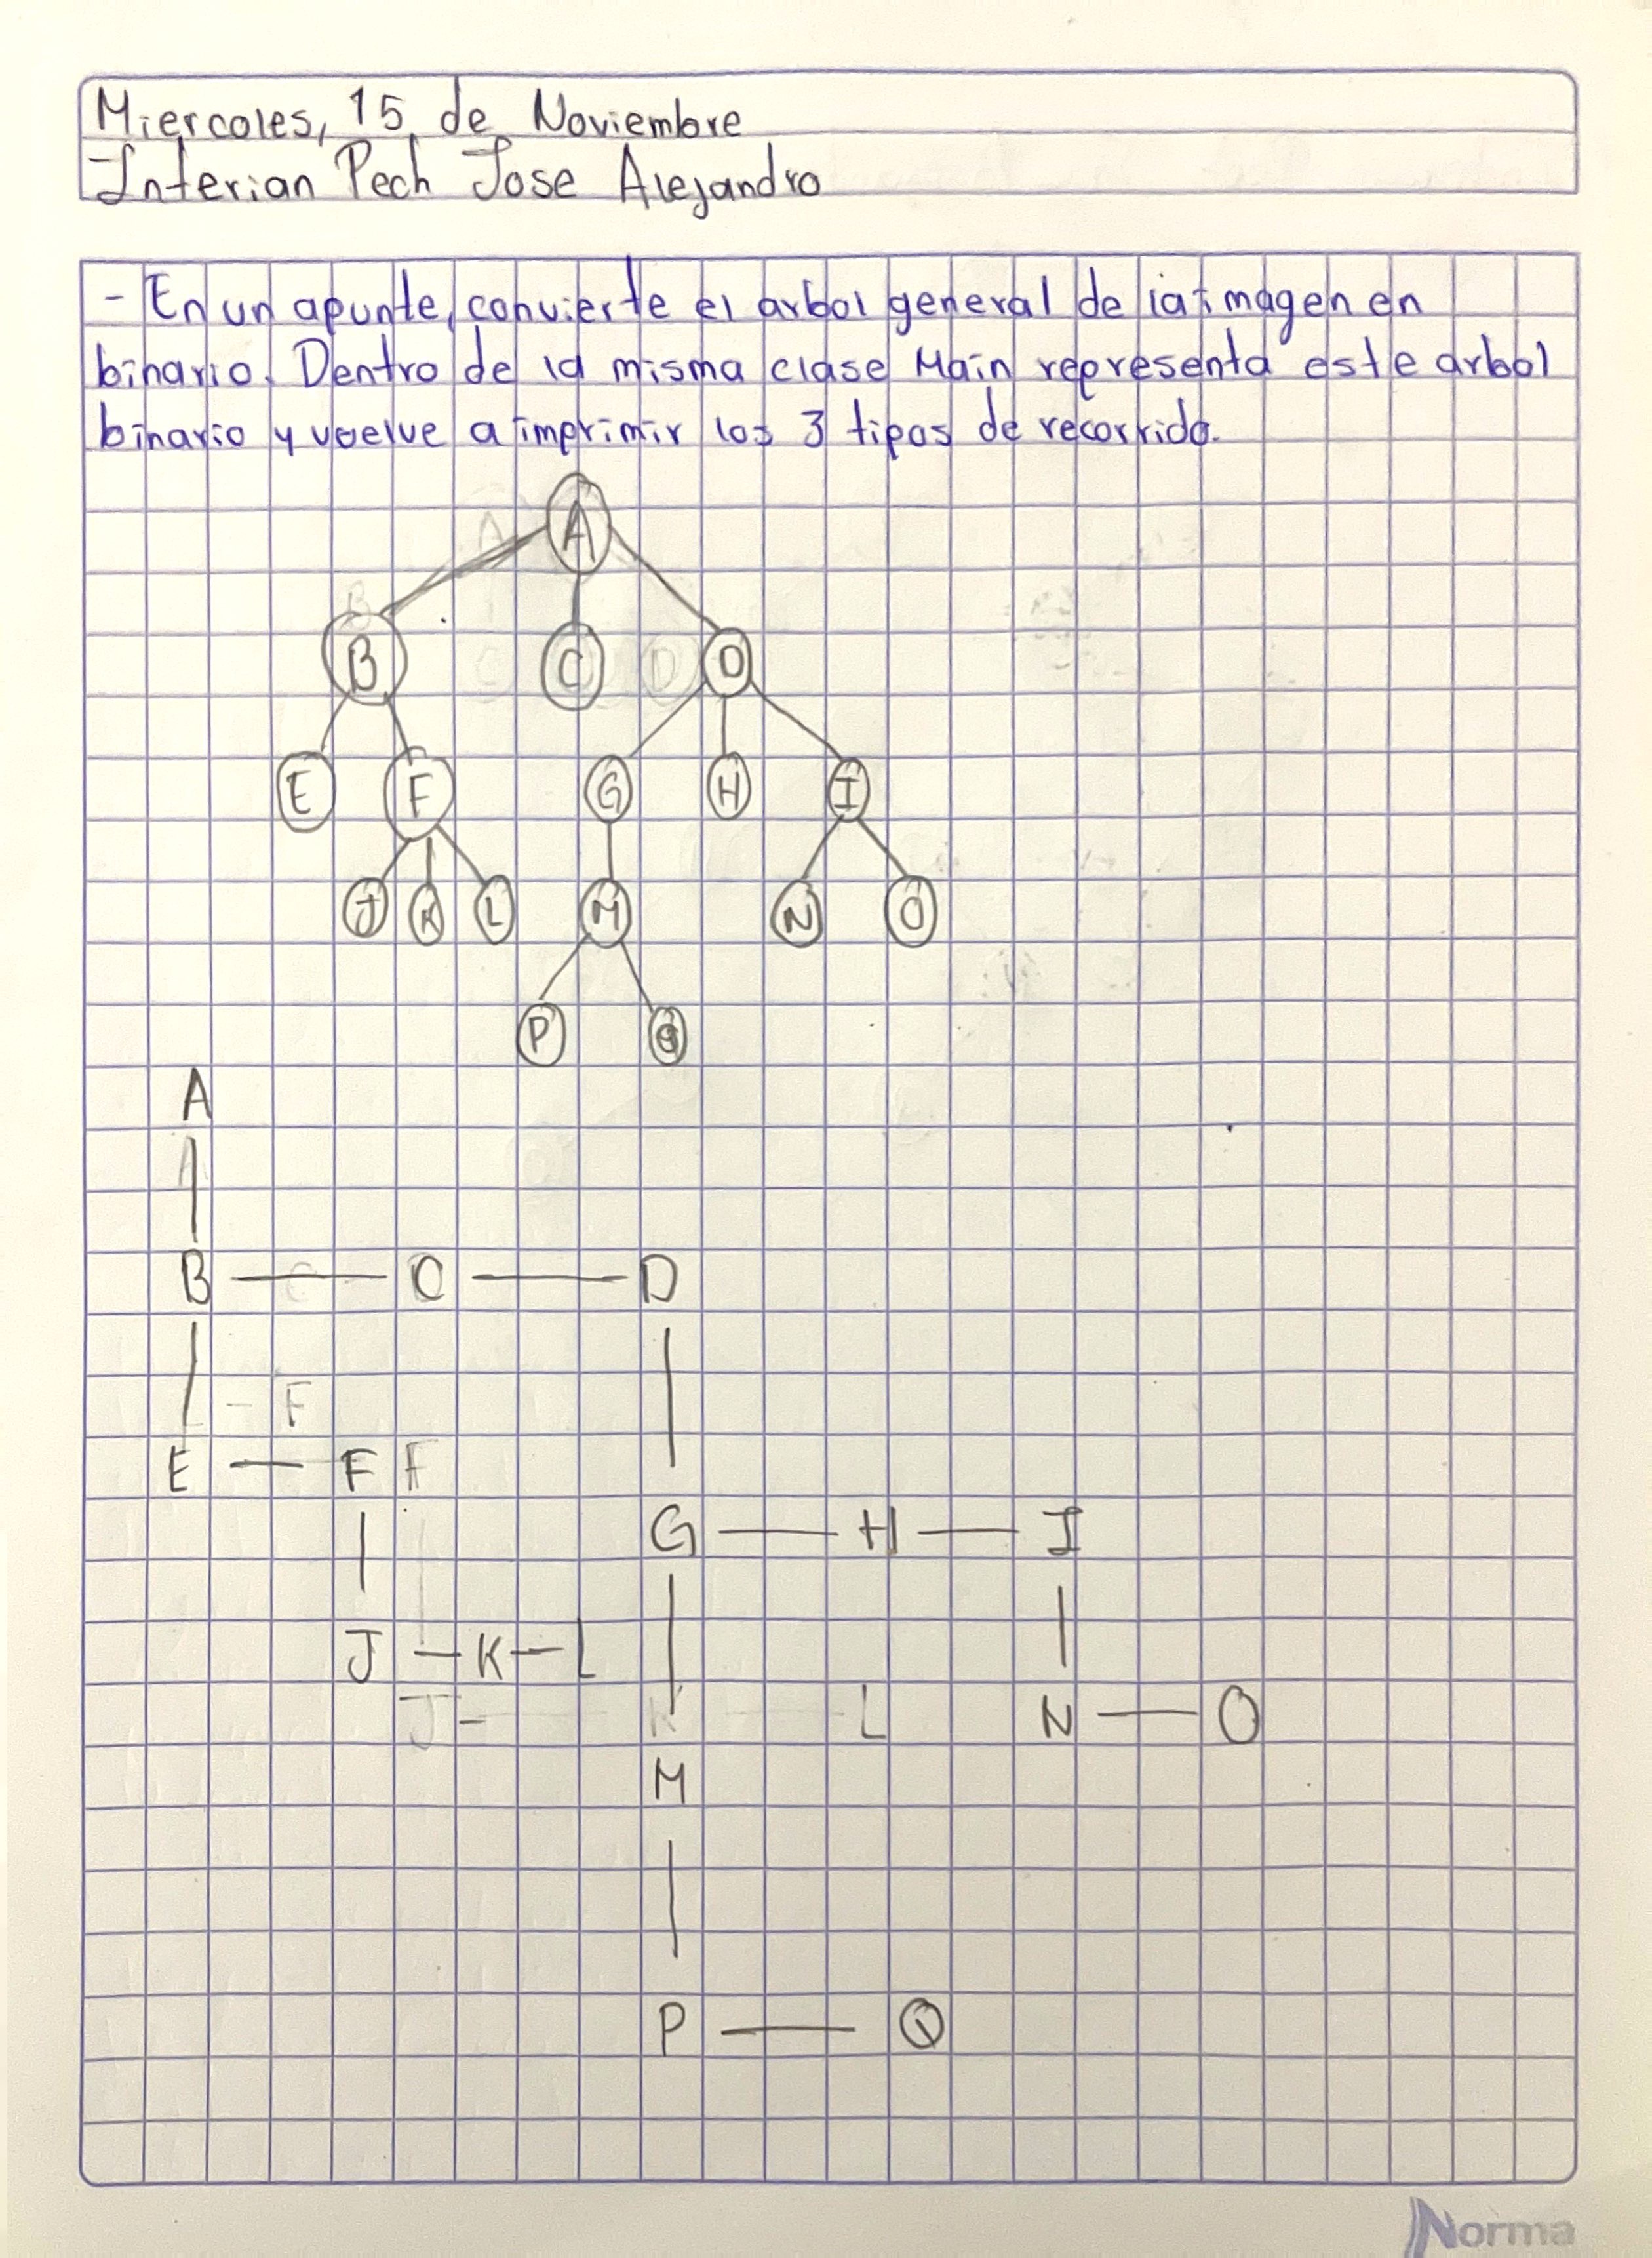 Miercoles, 15 de Noviembre
Interian Pech Jose Alejandro
- En un apunte, convierte el arbol general de la imagen en
binario. Dentro de la misma clase Main representa este arbol
binario y vuelve a imprimir los 3 tipos de recorrido.
A
B C D
E F G H I
J K L M N O
P Q
A
B — C — D
E — F
G — H — I
J — K — L
N — O
M
P — Q
Norma